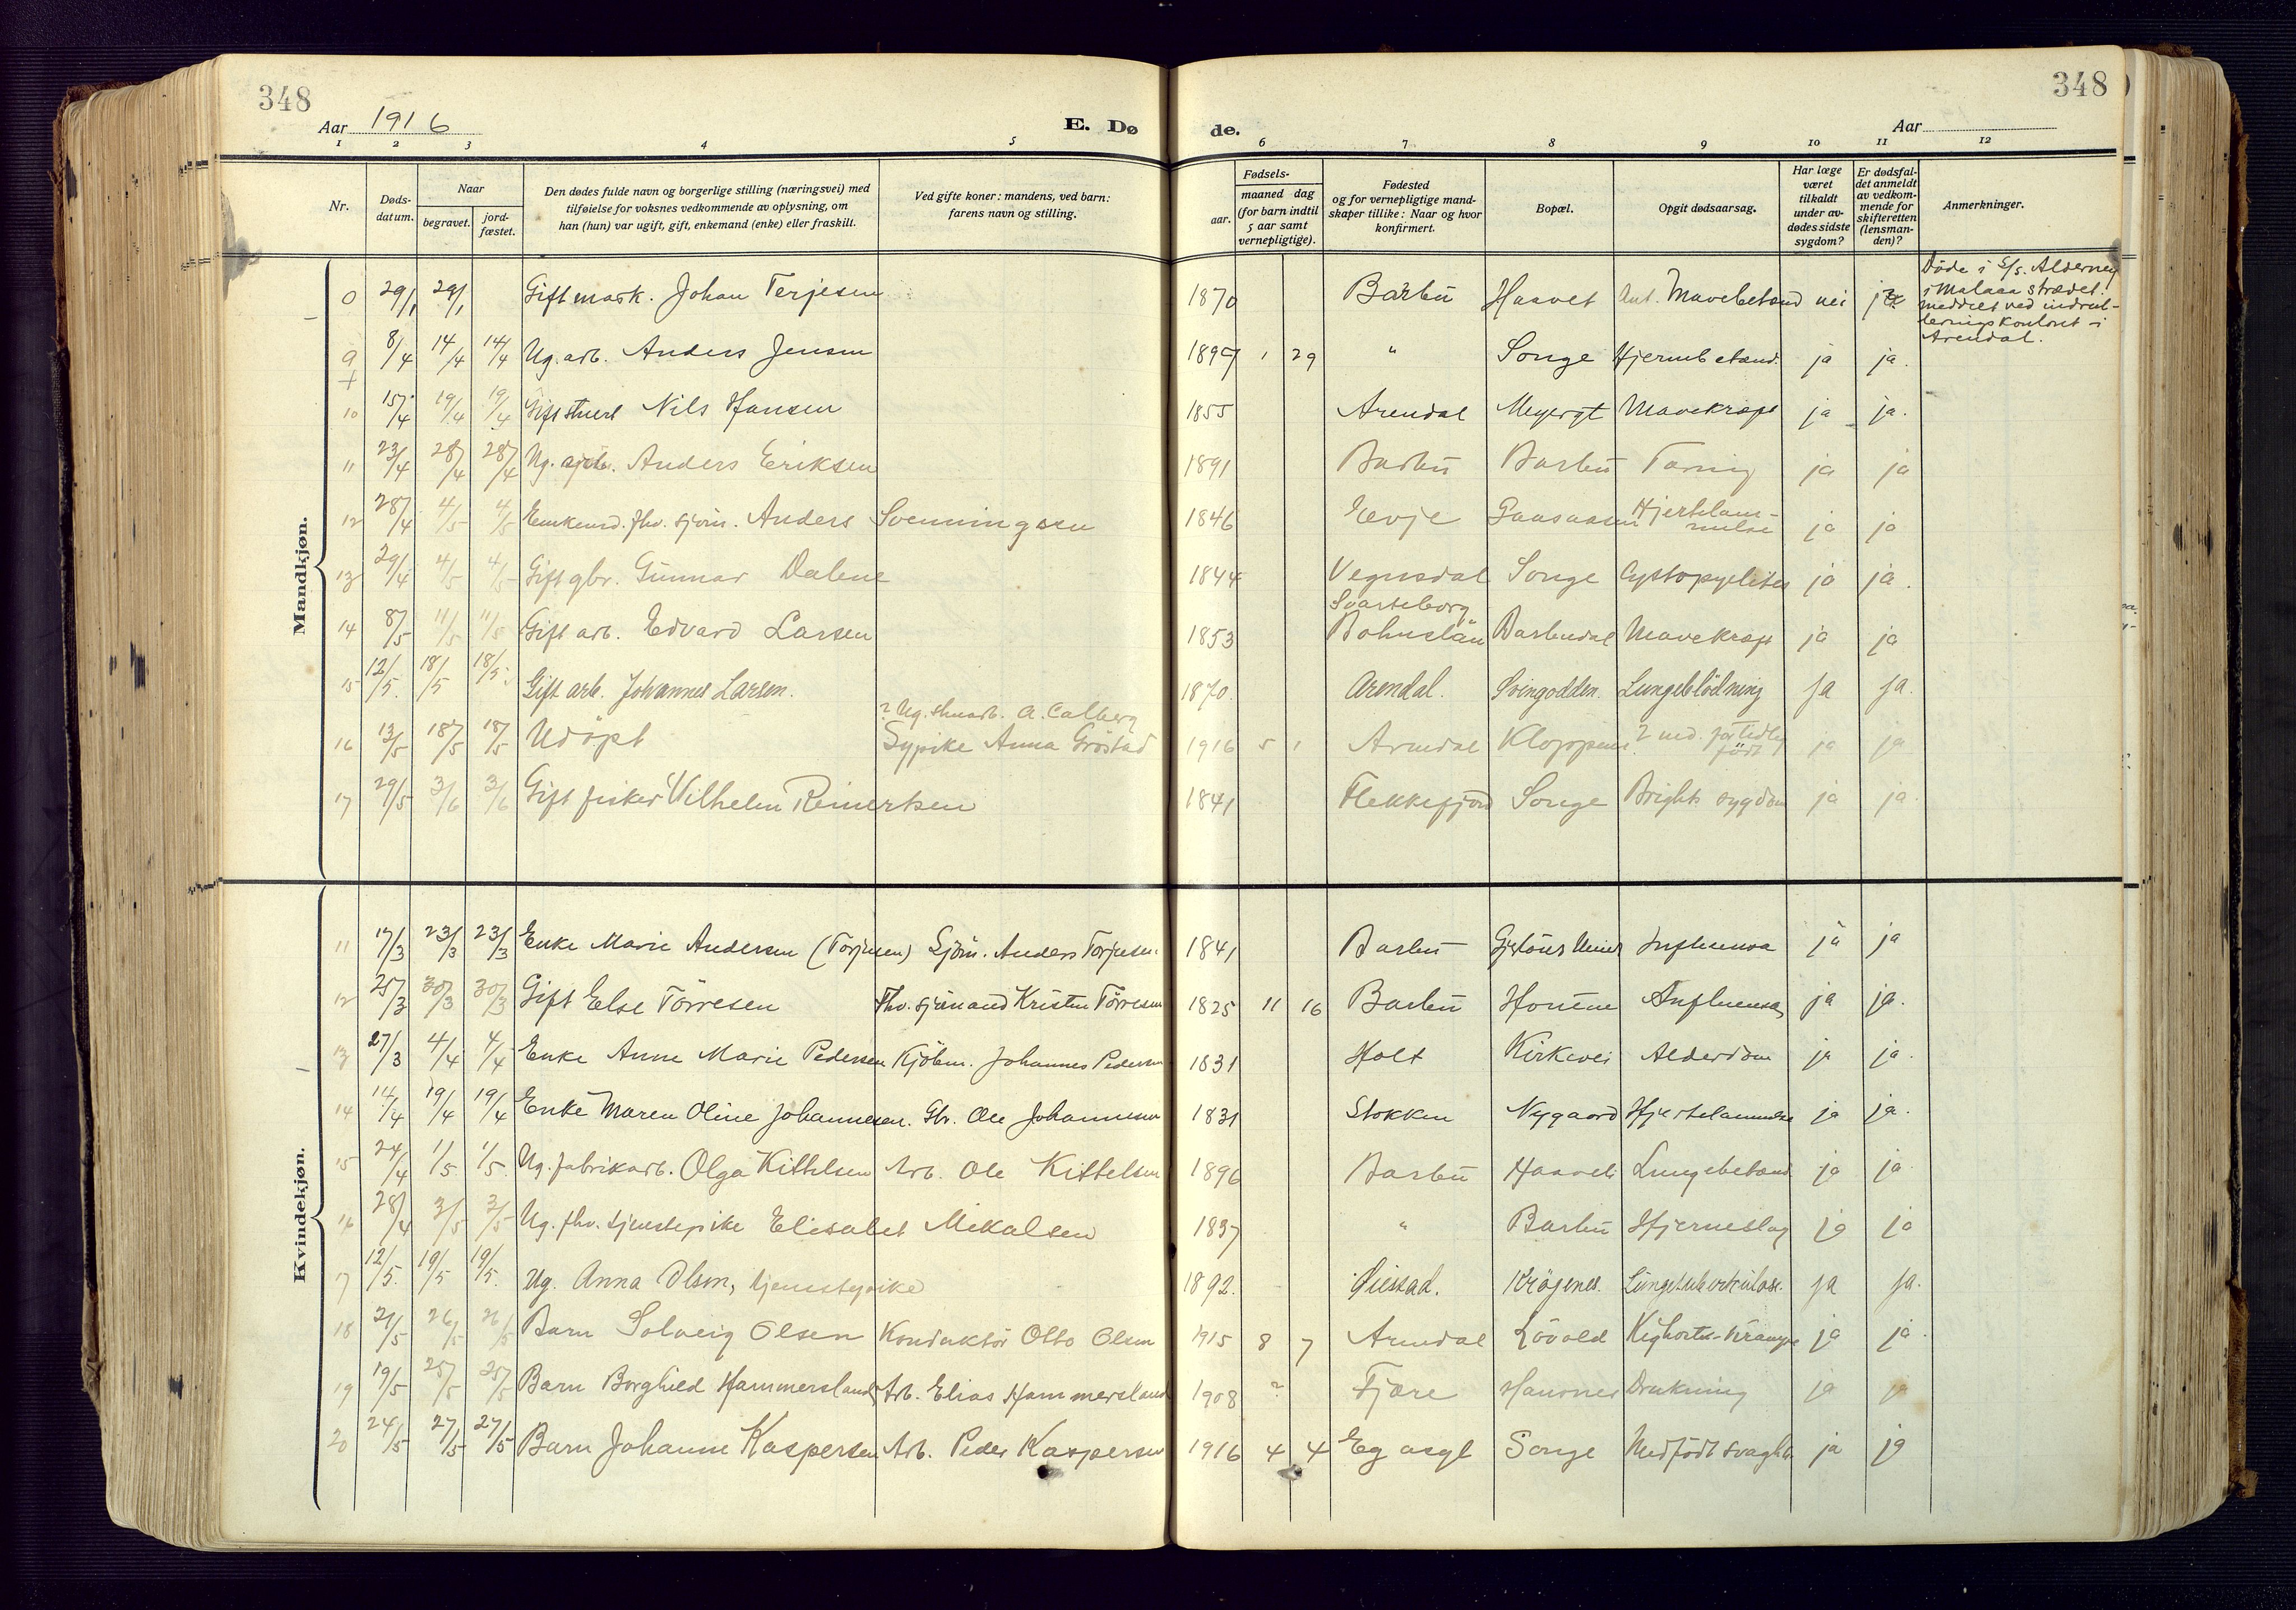 348
Aar 1916
E. Dø
de.
Aar
348
1 2 3 4 5 6 7 8 9 10 11 12
Nr.
Døds-
datum.
Naar
begravet.
jord-
fæstet.
Den dødes fulde navn og borgerlige stilling (næringsvei) med
tilføielse for voksnes vedkommende av oplysning, om
han (hun) var ugift, gift, enkemand (enke) eller fraskilt.
Ved gifte koner: mandens, ved barn:
farens navn og stilling.
Fødsels-
aar.
maaned dag
(for barn indtil
5 aar samt
vernepligtige).
Fødested
og for vernepligtige mand-
skaper tillike: Naar og hvor
konfirmert.
Bopæl.
Opgit dødsaarsag.
Har læge
været
tilkaldt
under av-
dødes sidste
sygdom?
Er dødsfal-
det anmeldt
av vedkom-
mende for
skifteretten
(lensman-
den)?
Anmerkninger.
Mandkjøn.
29/1 29/1 Gift mask. Johan Terjesen 1870 Barbu Haavet Mavebetænd nei ja
Døde i S/S. Alderney
i Malaca strædet.
meddelt ved indrul-
leringskontoret i
Arendal.
9 8/4 14/4 14/4 Ug. arb. Anders Jensen 1 29 " Songe Hjernebetænd. ja ja.
+
10 15/4 19/4 19/4 Gift stuert Nils Hansen 1855 Arendal Myrergt Mavekræft ja ja.
11 23/4 28/4 28/4 Ug. Anders Eriksen 1891 Barbu Barbu Tæring ja ja
12 28/4 4/5 4/5 Enkemd. fhv. sjøm. Anders Svenningsen 1846 Evje Gaasaasen Hjertelam-
melse ja ja
13 29/4 4/5 4/5 Gift gbr. Gunnar Dalene 1844 Vegusdal Songe Cystopyelites ja ja.
Svarteborg
14 8/5 11/5 11/5 Gift arb. Edvard Larsen 1853 Bohuslän Barbudal Mavekræft ja ja
15 12/5. 18/5 18/5. Gift arb. Johannes Larsen. 1870. Arendal. Svingodden. Lungeblödning ja ja.
? Ug. stuarb. A. Calberg
16 13/5 18/5 18/5 Udöpt Sypike Anna Gröstad 1916 5 1 Arendal Kloppene 2 md. for tidlig
födt ja ja
17 29/5 3/6 3/6 Gift fisker Vilhelm Reinertsen 1841 Flekkefjord Songe Brights sygdom ja ja.
Kvindekjøn.
11 17/3 23/3 23/3 Enke Marie Andersen (Torjusen) Sjöm. Anders Torjusen. 1841 Barbu Influensa ja ja
12 25/3 30/3 30/3 Gift Else Törresen Fhv. sjömand Kristen Törresen 1825 11 16 Barbu Influensa ja ja.
13 27/3 4/4 4/4 Enke Anne Marie Pedersen Kjöbm. Johannes Pedersen 1831 Holt Kirkevei Alderdom ja ja.
14 14/4 19/4 19/4 Enke Maren Oline Johannesen. Gbr. Ole Johannesen 1831 Stokken Nygaard Hjertelammelse ja ja.
15 24/4 1/5 1/5. Ug. fabrikarb. Olga Kittelsen Arb. Ole Kittelsen 1896 Barbu Lungebetænd ja ja
16 28/4 3/5 3/5 Ug. fhv. tjenestepike Elisabet Mikalsen 1837 " Barbu Hjerneslag ja ja
17 12/5. 19/5 19/5. Ug. Anna Olsen, tjenestepike 1892. Öiestad. Krögenes. Lungetuberkulose. ja ja.
18 21/5 26/5 26/5 Barn Solveig Olsen Konduktör Otto Olsen 1915 8 7 Arendal Lövold Kighoste-Krampe ja ja.
19 19/5 25/5 25/5 Barn Borghild Hammersland Arb. Elias Hammersland 1908 ? Fjære Drukning ja ja
20 24/5 27/5 27/5 Barn Johanne Kaspersen Arb. Peder Kaspersen 1916 4 4 Eg asyl Songe Medfödt svaghet ja ja